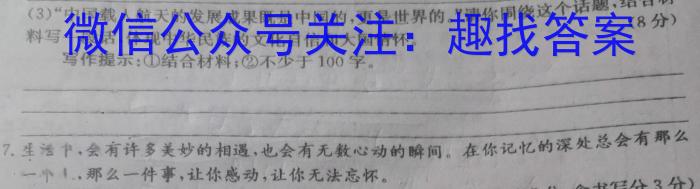 (3)“中国载人航天的发展成果既是中国的,更是世界的。”请你围绕这个话题,结合材
料写 (8分)
微信公众号关注：趣找答案
写作提示:①结合材料;②不少于100字。
7.生活中,会有许多美妙的相遇,也会有无数心动的瞬间。在你记忆的深处总会有那么
一个人,那么一件事,让你感动,让你无法忘怀。
书写分3分)